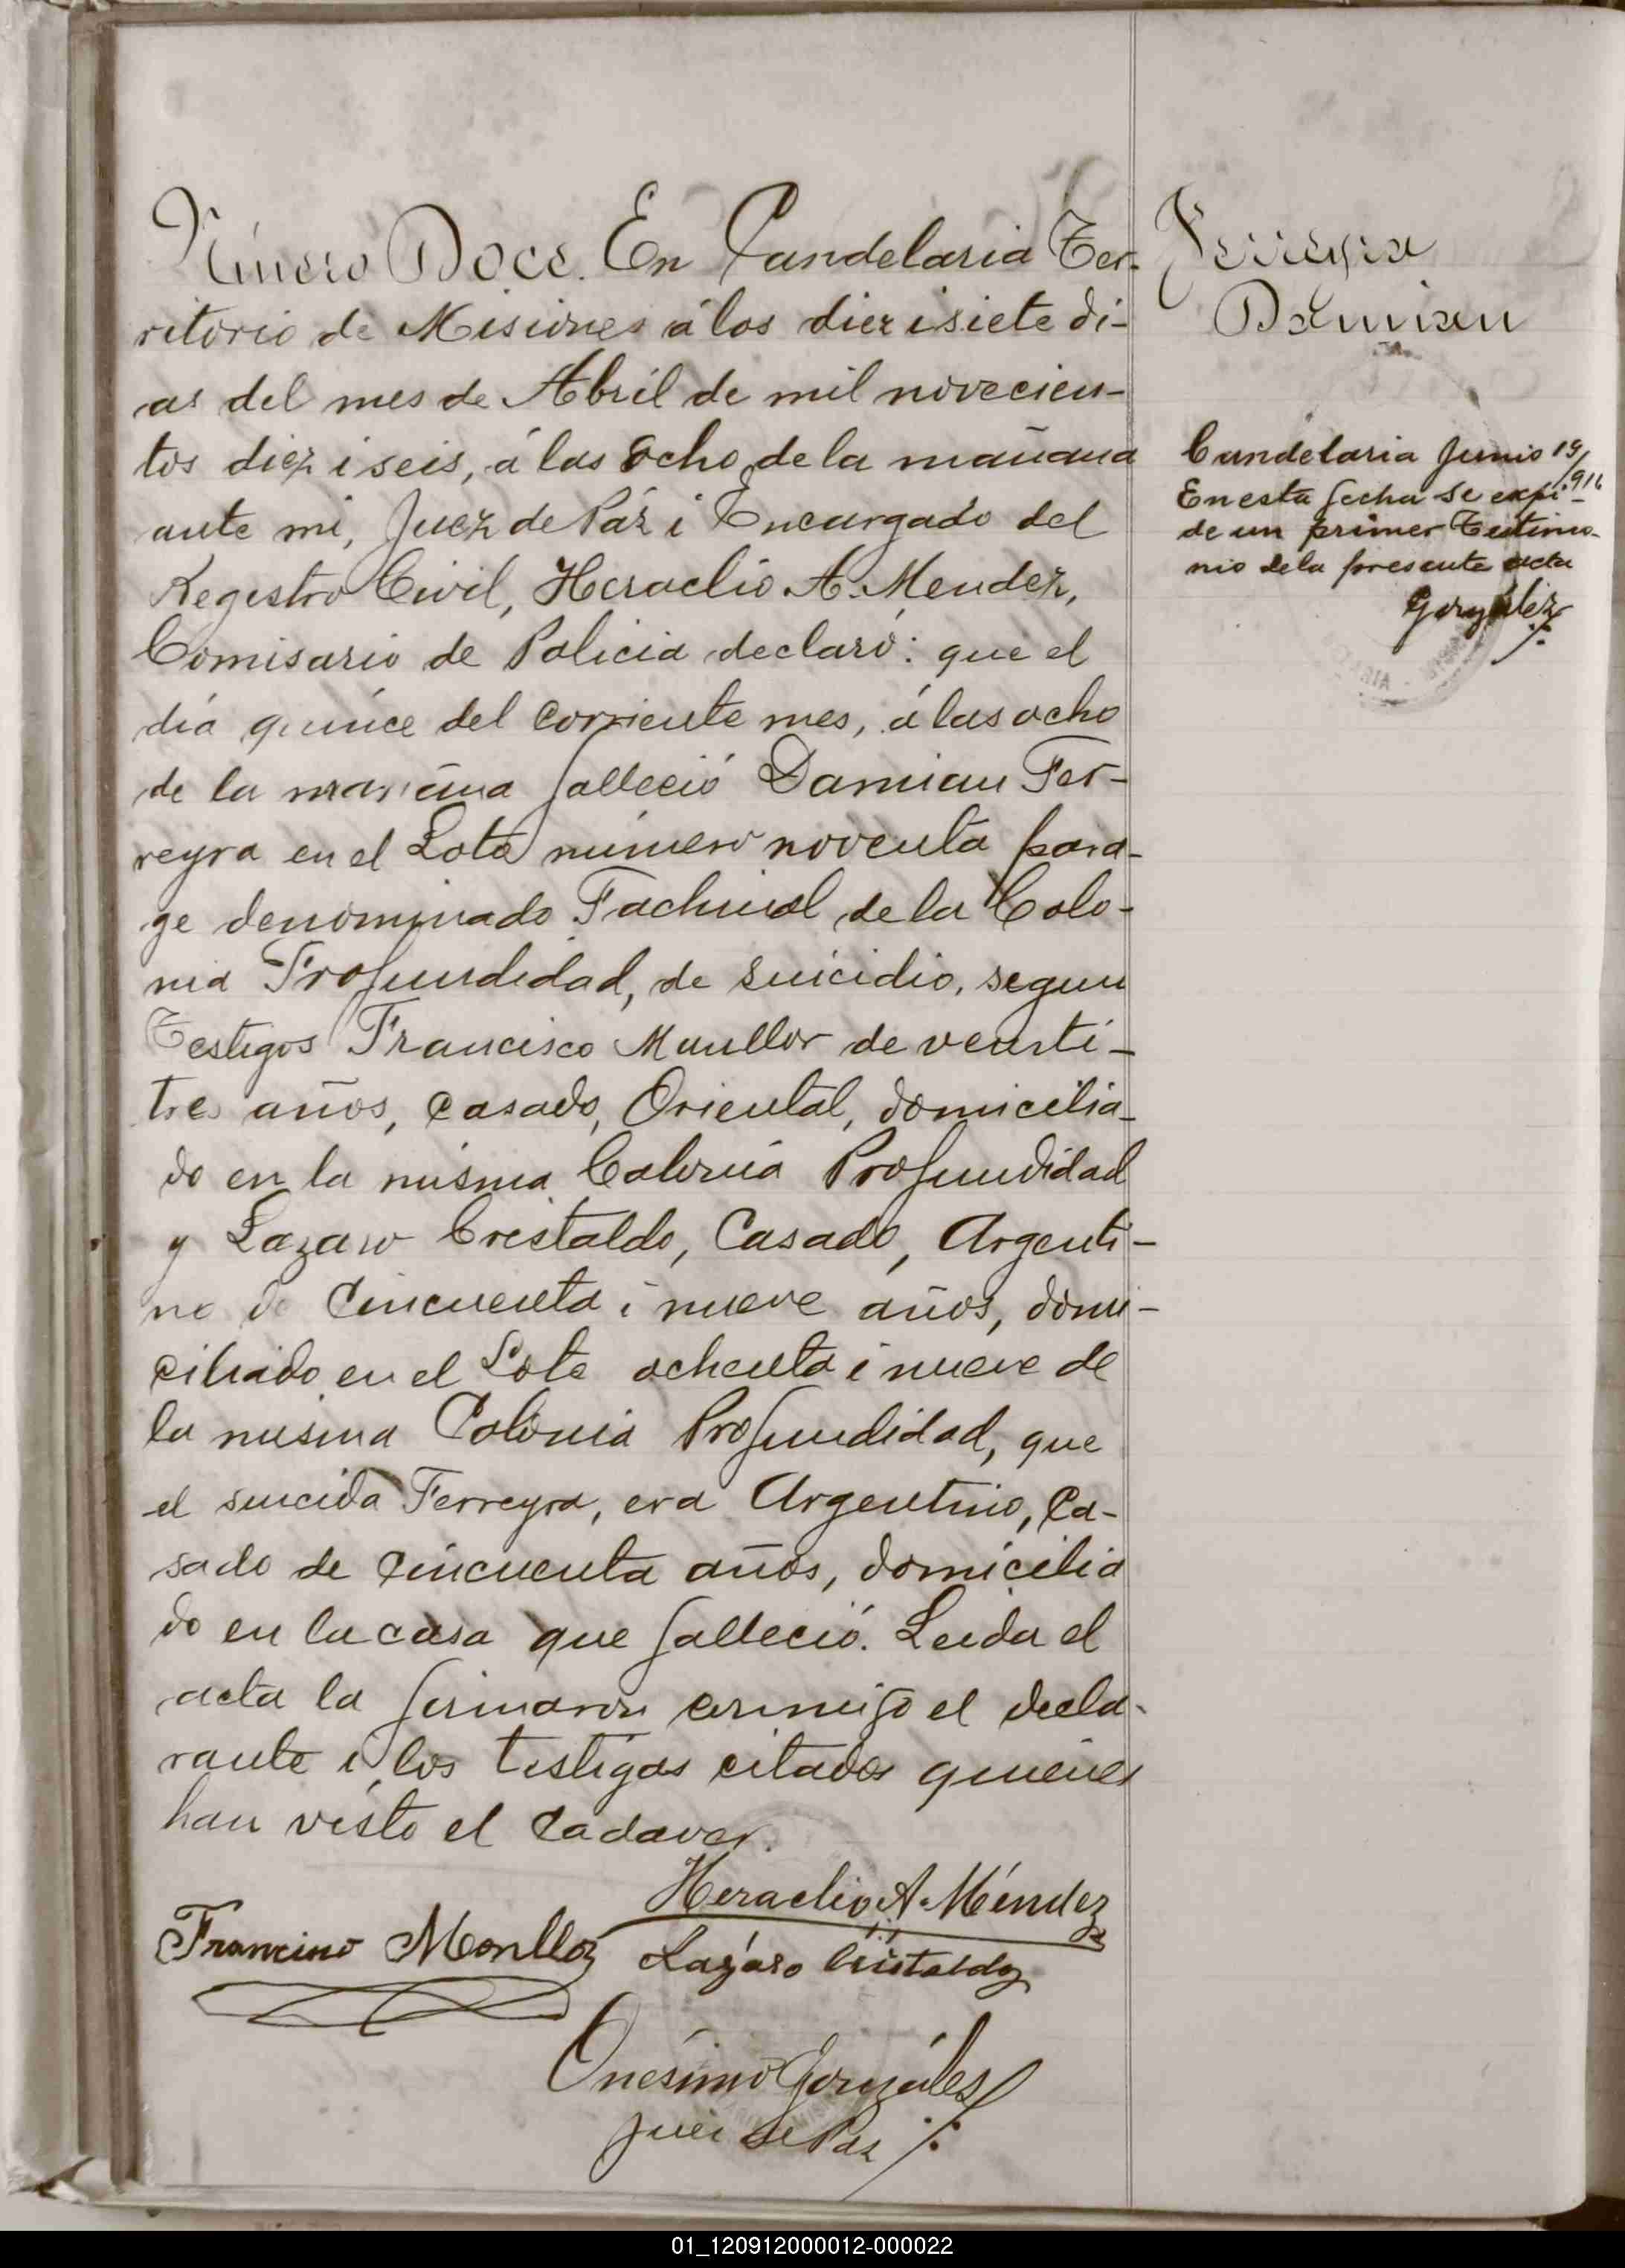 Número Doce. En Candelaria Ter-
ritorio de Misiones á los diez i siete dí-
as del mes de Abril de mil novecien-
tos diez i seis, á las ocho de la mañana
ante mi, Juez de Páz i Encargado del
Registro Civil, Heraclio A. Mendez,
Comisario de Policia declaró: que el
día quince del corriente mes, á las ocho
de la mañana falleció Damian Fer-
reyra en el Lote número noventa para-
ge denominado Fachinal de la Colo-
nia Profundidad, de suicidio, segun
Testigos Francisco Monllor de veinti-
tres años, casado, Oriental, domicilia-
do en la misma Colonia Profundidad
y Lazaro Cristaldo, Casado, Argenti-
no de Cincuenta i nueve años, domi-
ciliado en el Lote ochenta i nueve de
la misma Colonia Profundidad, que
el suicida Ferreyra, era Argentino, Ca-
sado de cincuenta años, domicilia
do en la casa que falleció. Leida el
acta la firmaron conmigo el decla-
rante i los testigos citados quienes
han visto el cadaver.
Heraclio A. Méndez
Francisco Monllor Lázaro Cristaldo
Onésimo Gonzáles
Juez de Paz
Ferreyra
Damian
Candelaria Junio 19/916
En esta fecha se expi-
de un primer Testimo-
nio de la presente acta
González
01_120912000012-000022